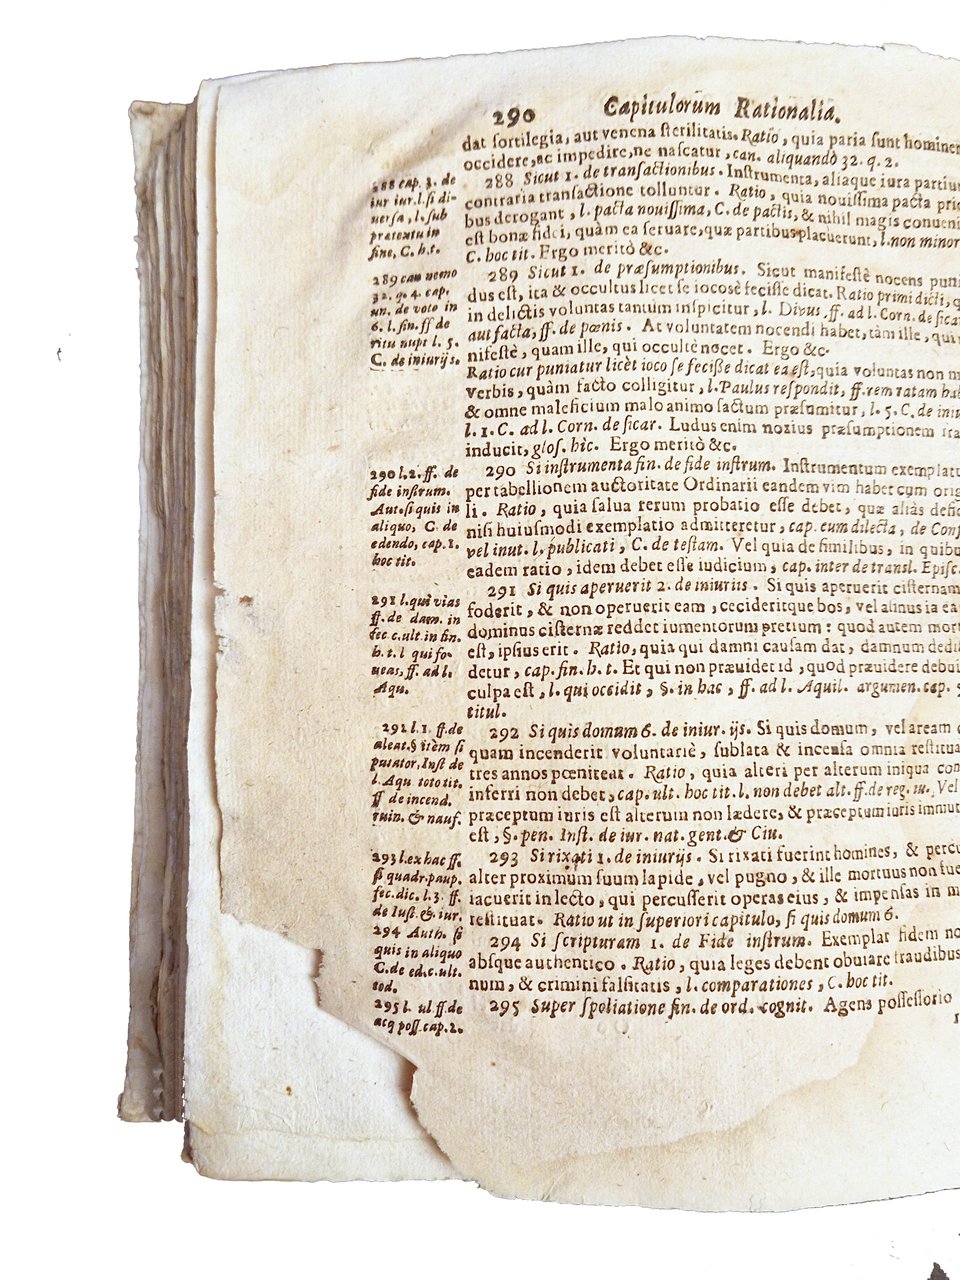 290 Capitulorum Rationalia.
dat ſortilegia, aut venena ſterilitatis. Ratio, quia paria ſunt hominem
occidere, ac impedire, ne naſcatur, can. aliquandò 32. q. 2.
288 Sicut 1. de tranſactionibus. Inſtrumenta, aliaque iura partiu
contraria tranſactione tolluntur. Ratio, quia nouiſſima pacta prio
bus derogant, l. pacta nouiſſima, C. de pactis, & nihil magis conueni
eſt bonæ fidei, quàm ea ſeruare, quæ partibus placuerunt, l. non minor
C. hoc tit. Ergo meritò &c.
289 Sicut 1. de præſumptionibus. Sicut manifeſtè nocens puni
dus eſt, ita & occultus licet ſe iocosè feciſſe dicat. Ratio primi dicti, q
in delictis voluntas tantum inſpicitur, l. Diuus, ff. ad l. Corn. de ſicar
aut facta, ff. de pœnis. At voluntatem nocendi habet, tàm ille, qui
nifeſtè, quam ille, qui occultè nocet. Ergo &c.
Ratio cur puniatur licèt ioco ſe feciſſe dicat ea eſt, quia voluntas non m
verbis, quàm facto colligitur, l. Paulus reſpondit, ff. rem ratam hab
& omne maleficium malo animo factum præſumitur, l. 5. C. de iniu
l. 1. C. ad l. Corn. de ſicar. Ludus enim noxius præſumptionem fra
inducit, gloſ. hìc. Ergo meritò &c.
290 Si inſtrumenta fin. de fide inſtrum. Inſtrumentum exemplatu
per tabellionem auctoritate Ordinarii eandem vim habet cum orig
li. Ratio, quia ſalua rerum probatio eſſe debet, quæ aliàs defic
niſi huiuſmodi exemplatio admitteretur, cap. cum dilecta, de Conf
vel inut. l. publicati, C. de teſtam. Vel quia de ſimilibus, in quibu
eadem ratio, idem debet eſſe iudicium, cap. inter de tranſl. Epiſc.
291 Si quis aperuerit 2. de iniuriis. Si quis aperuerit ciſternam
foderit, & non operuerit eam, cecideritque bos, vel aſinus in ea
dominus ciſternæ reddet iumentorum pretium: quod autem mort
eſt, ipſius erit. Ratio, quia qui damni cauſam dat, damnum dediſ
detur, cap. fin. h. t. Et qui non præuidet id, quod præuidere debui
culpa eſt, l. qui occidit, §. in hac, ff. ad l. Aquil. argumen. cap. 9
titul.
292 Si quis domum 6. de iniur. ijs. Si quis domum, vel aream
quam incenderit voluntariè, ſublata & incenſa omnia reſtitua
tres annos pœniteat. Ratio, quia alteri per alterum iniqua con
inferri non debet, cap. ult. hoc tit. l. non debet alt. ff. de reg. iu. Vel
præceptum iuris eſt alterum non lædere, & præceptum iuris immut
eſt, §. pen. Inſt. de iur. nat. gent. & Ciu.
293 Si rixati 1. de iniurijs. Si rixati fuerint homines, & percu
alter proximum ſuum lapide, vel pugno, & ille mortuus non fue
iacuerit in lecto, qui percuſſerit operas eius, & impenſas in m
reſtituat. Ratio ut in ſuperiori capitulo, ſi quis domum 6.
294 Si ſcripturam 1. de Fide inſtrum. Exemplar fidem no
abſque authentico. Ratio, quia leges debent obuiare fraudibus
num, & crimini falſitatis, l. comparationes, C. hoc tit.
295 Super ſpoliatione fin. de ord. cognit. Agens poſſeſſorio
288 cap. 3. de
iur iur. l. ſi di-
uerſa, l. ſub
prætextu in
fine, C. h. t.
289 can nemo
32. q. 4. cap.
un. de voto in
6. l. fin. ff de
ritu nupt l. 5.
C. de iniurijs.
290 l. 2. ff. de
fide inſtrum.
Aut. ſi quis in
aliquo, C. de
edendo, cap. 1.
hoc tit.
291 l. qui vias
ff. de dam. in
fec. c. ult. in fin.
h. t. l qui fo-
ueas, ff. ad l.
Aqu.
292 l. 1. ff. de
aleat. § item ſi
putator, Inſt de
l. Aqu toto tit.
ff de incend.
ruin. & nauf.
293 l. ex hac ff.
ſi quadr. paup.
fec. dic. l. 3. ff.
de Iuſt. & iur.
294 Auth. ſi
quis in aliquo
C. de ed. c. ult.
eod.
295 l. ul ff. de
acq poſſ. cap. 2.